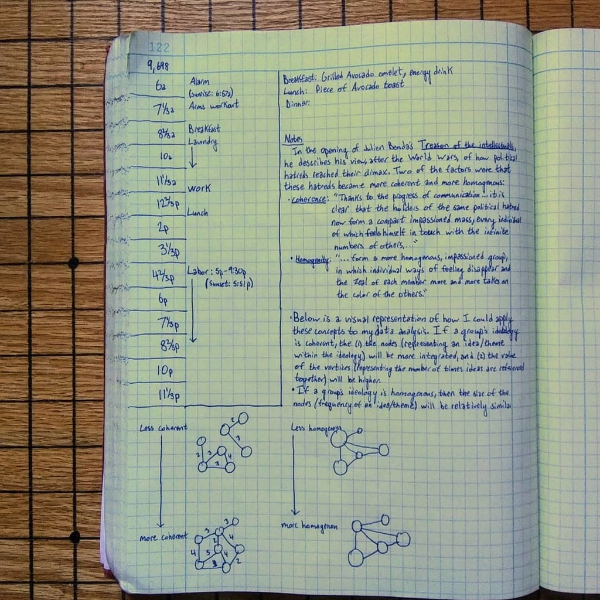 122
9,698
6a
7 1/3a
8 2/3a
10a
11 1/3a
12 2/3p
2p
3 1/3p
4 2/3p
6p
7 1/3p
8 2/3p
10p
11 1/3p
Alarm
(Sunrise: 6:57a)
Arms workout
Breakfast
Laundry
Work
Lunch
Labor: 5p-9:30p
(Sunset: 5:51p)
Breakfast: Grilled Avocado omelet, energy drink
Lunch: Piece of Avocado toast
Dinner:
Notes
In the opening of Julien Benda's Treason of the Intellectuals,
he describes his view, after the World Wars, of how political
hatreds reached their climax. Two of the factors were that
these hatreds became more coherent and more homogenous:
• Coherence: "Thanks to the progress of communication... it is
clear that the holders of the same political hatred
now form a compact impassioned mass, every individual
of which feels himself in touch with the infinite
numbers of others,..."
• Homogeneity: "...form a more homogenous, impassioned group,
in which individual ways of feeling disappear and
the zeal of each member more and more takes on
the color of the others."
• Below is a visual representation of how I could apply
these concepts to my data analysis. If a group's ideology
is coherent, the (1) the nodes (representing an idea/theme
within the ideology) will be more integrated, and (2) the value
of the vertices (representing the number of times ideas are referenced
together) will be higher.
• If a group's ideology is homogenous, then the size of the
nodes (frequency of an idea/theme) will be relatively similar
Less coherent
More coherent
Less homogenous
more homogenous